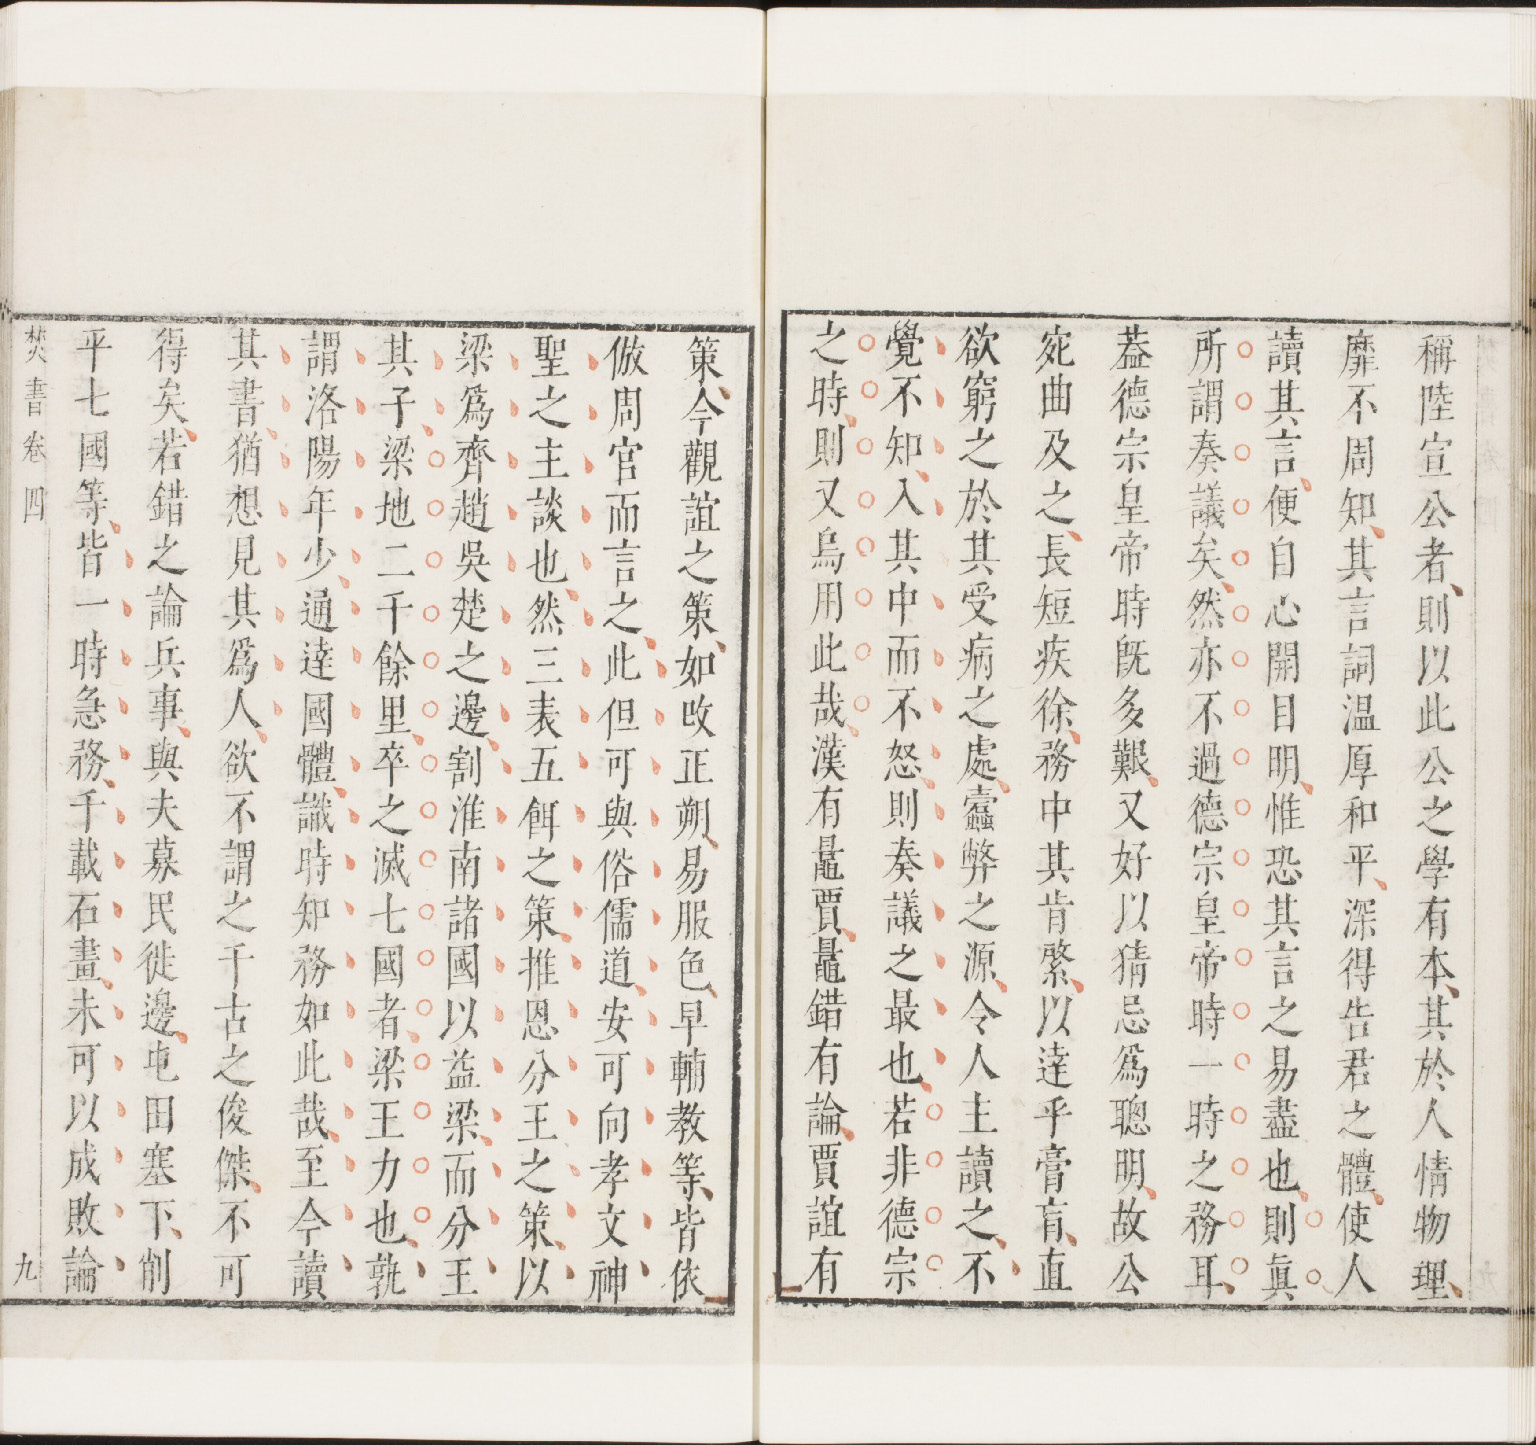 稱陸宣公者則以此公之學有本其於人情物理
靡不周知其言詞温厚和平深得告君之體使人
讀其言便自心開目明惟恐其言之易盡也則眞
所謂奏議矣然亦不過德宗皇帝時一時之務耳
葢德宗皇帝時旣多艱又好以猜忌爲聰明故公
宛曲及之長短疾徐務中其肯綮以達乎膏肓直
欲窮之於其受病之處蠧弊之源令人主讀之不
覺不知入其中而不怒則奏議之最也若非德宗
之時則又烏用此哉漢有鼂賈鼂錯有論賈誼有
策今觀誼之策如改正朔易服色早輔教等皆依
倣周官而言之此但可與俗儒道安可向孝文神
聖之主談也然三表五餌之策推恩分王之策以
梁爲齊趙吳楚之邊割淮南諸國以益梁而分王
其子梁地二千餘里卒之滅七國者梁王力也孰
謂洛陽年少通達國體識時知務如此哉至今讀
其書猶想見其爲人欲不謂之千古之俊傑不可
得矣若錯之論兵事與夫募民徙邊屯田塞下削
平七國等皆一時急務千載石畫未可以成敗論
焚書卷四 九